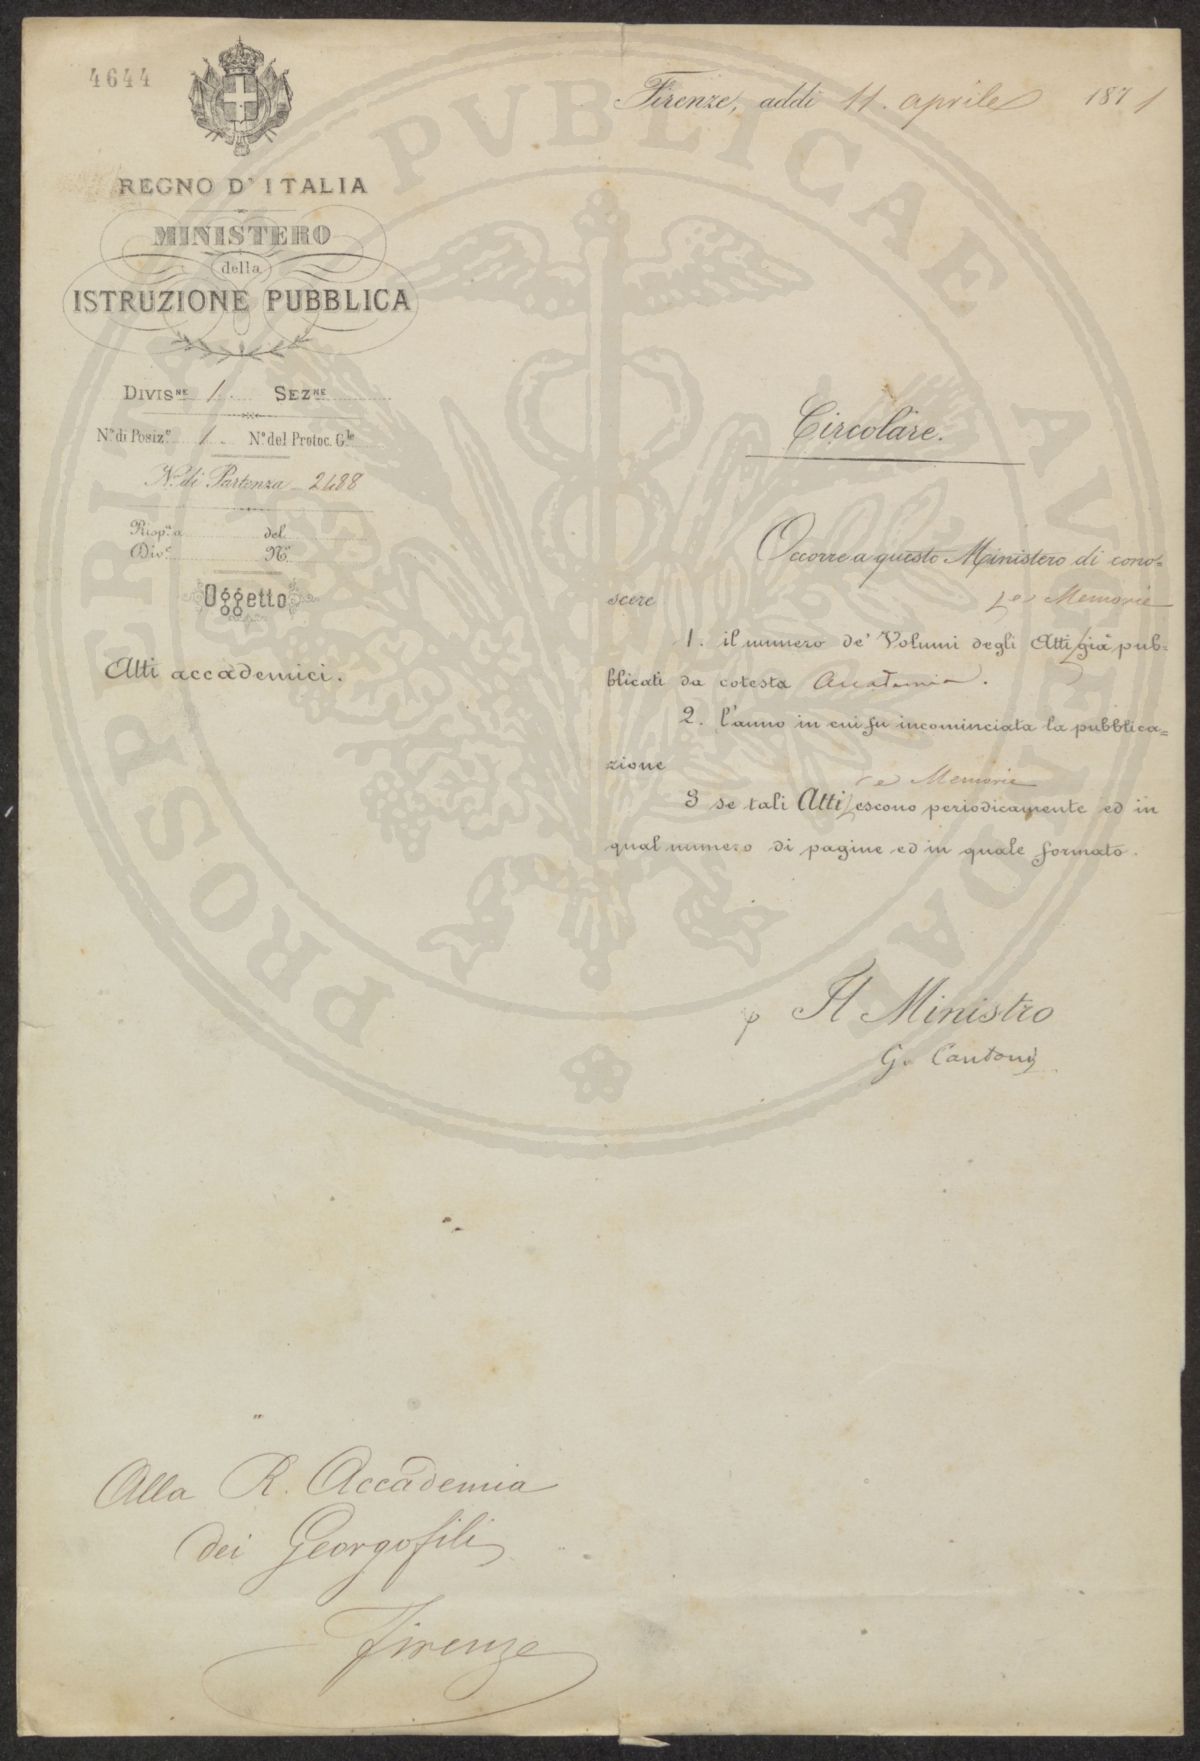 4644
REGNO D'ITALIA
MINISTERO
della
ISTRUZIONE PUBBLICA
DIVIS.NE 1. SEZ.NE
N.o di Posiz.e 1. N.o del Protoc. G.le
N.o di Partenza 2488
Risp.a a del
Div.e N.o
Oggetto
Atti accademici.
Firenze, addì 11. aprile 1871
Circolare.
Occorre a questo Ministero di cono-
scere e Memorie
1. il numero de' Volumi degli Atti già pub=
blicati da cotesta Accademia.
2. l'anno in cui fu incominciata la pubblica=
zione
e Memorie
3 se tali Atti escono periodicamente ed in
qual numero di pagine ed in quale formato.
p Il Ministro
G. Cantoni
Alla R. Accademia
dei Georgofili
Firenze
PROSPERITATI PVBLICAE AVGENDAE